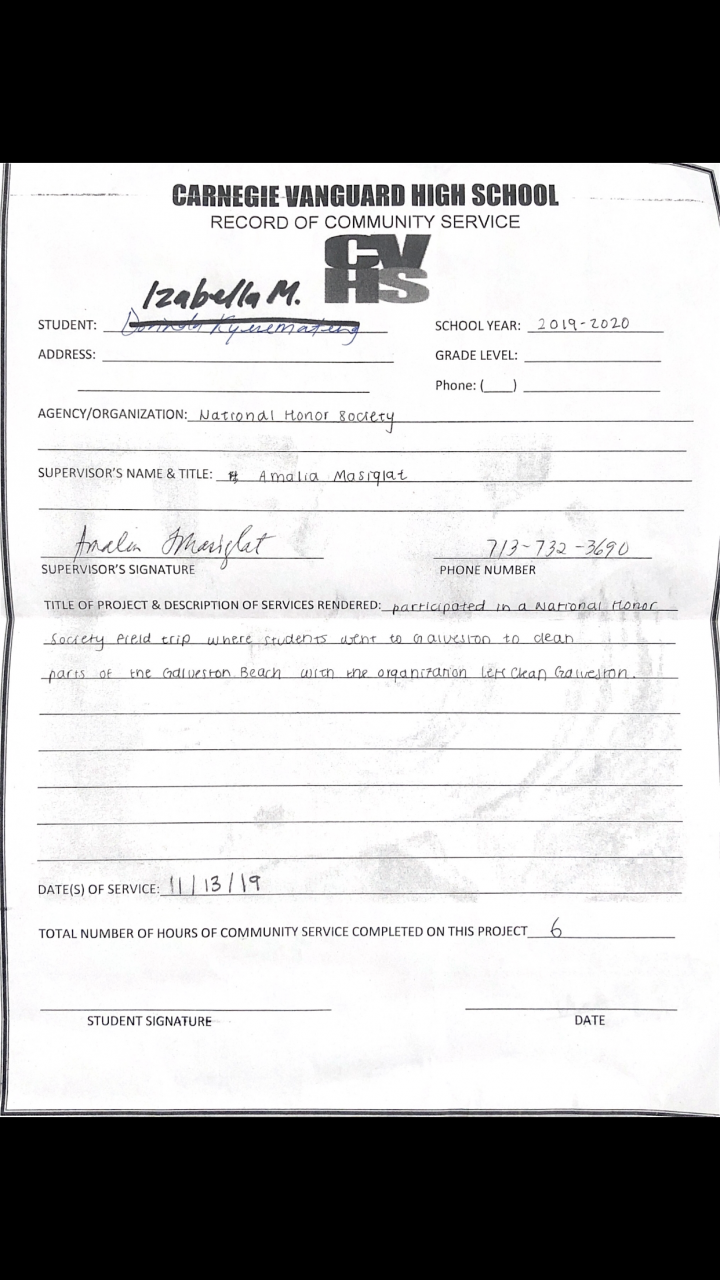 CARNEGIE VANGUARD HIGH SCHOOL
RECORD OF COMMUNITY SERVICE
CV
HS
Izabella M.
STUDENT: Dorinda Kyeremateng SCHOOL YEAR: 2019-2020
ADDRESS: GRADE LEVEL:
Phone: ( )
AGENCY/ORGANIZATION: National Honor Society
SUPERVISOR'S NAME & TITLE: Amalia Masiglat
Amalia Masiglat 713-732-3690
SUPERVISOR'S SIGNATURE PHONE NUMBER
TITLE OF PROJECT & DESCRIPTION OF SERVICES RENDERED: participated in a National Honor
Society Field trip where students went to Galveston to clean
parts of the Galveston Beach with the organization Lets Clean Galveston.
DATE(S) OF SERVICE: 11/13/19
TOTAL NUMBER OF HOURS OF COMMUNITY SERVICE COMPLETED ON THIS PROJECT 6
STUDENT SIGNATURE DATE